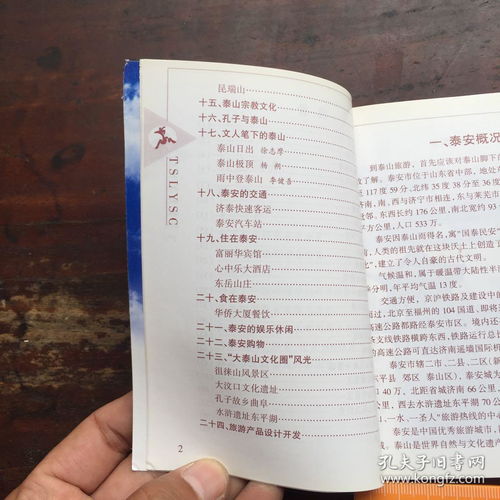 昆瑞山
十五、泰山宗教文化
十六、孔子与泰山
十七、文人笔下的泰山
泰山日出 徐志摩
泰山极顶 杨朔
雨中登泰山 李健吾
十八、泰安的交通
济泰快速客运
泰安汽车站
十九、住在泰安
富丽华宾馆
心中乐大酒店
东岳山庄
二十、食在泰安
华侨大厦餐饮
二十一、泰安的娱乐休闲
二十二、泰安购物
二十三、“大泰山文化圈”风光
徂徕山风景区
大汶口文化遗址
孔子故乡曲阜
水浒遗址东平湖
二十四、旅游产品设计开发
2
TSLYSC
一、泰安概况
到泰山旅游，首先应该对泰山脚下
了解。泰安市位于山东省中部，地处
117度59分，北纬35度38分至36度
南，南、西与济宁市相连，东与莱芜市
邻。东西长约176公里，南北宽约93
平方公里，人口533万。
泰安因泰山而得名，寓“国泰民安”
，人类的祖先就在这块沃土上创造了
化”，建立了令人自豪的古代文明。
气候温和，属于暖温带大陆性半
分明，年平均气温13度。
交通方便，京沪铁路及建设中的
过，北京至福州的104国道，即将
速公路都路经泰安市区。境内还
条支线铁路横跨东西，铁路运行总
高速公路可直达济南遥墙国际机
泰安市辖二市、二县、二区（新
（泰平县 郊区 泰山区），泰安城
40万，北距省城济南66公里，
里，西去水浒遗址东平湖70公
、一水、一圣人”旅游热线的中
泰安是中国优秀旅游城市，
城。泰山是世界自然与文化遗产
孔夫子旧书网
www.kongfz.com